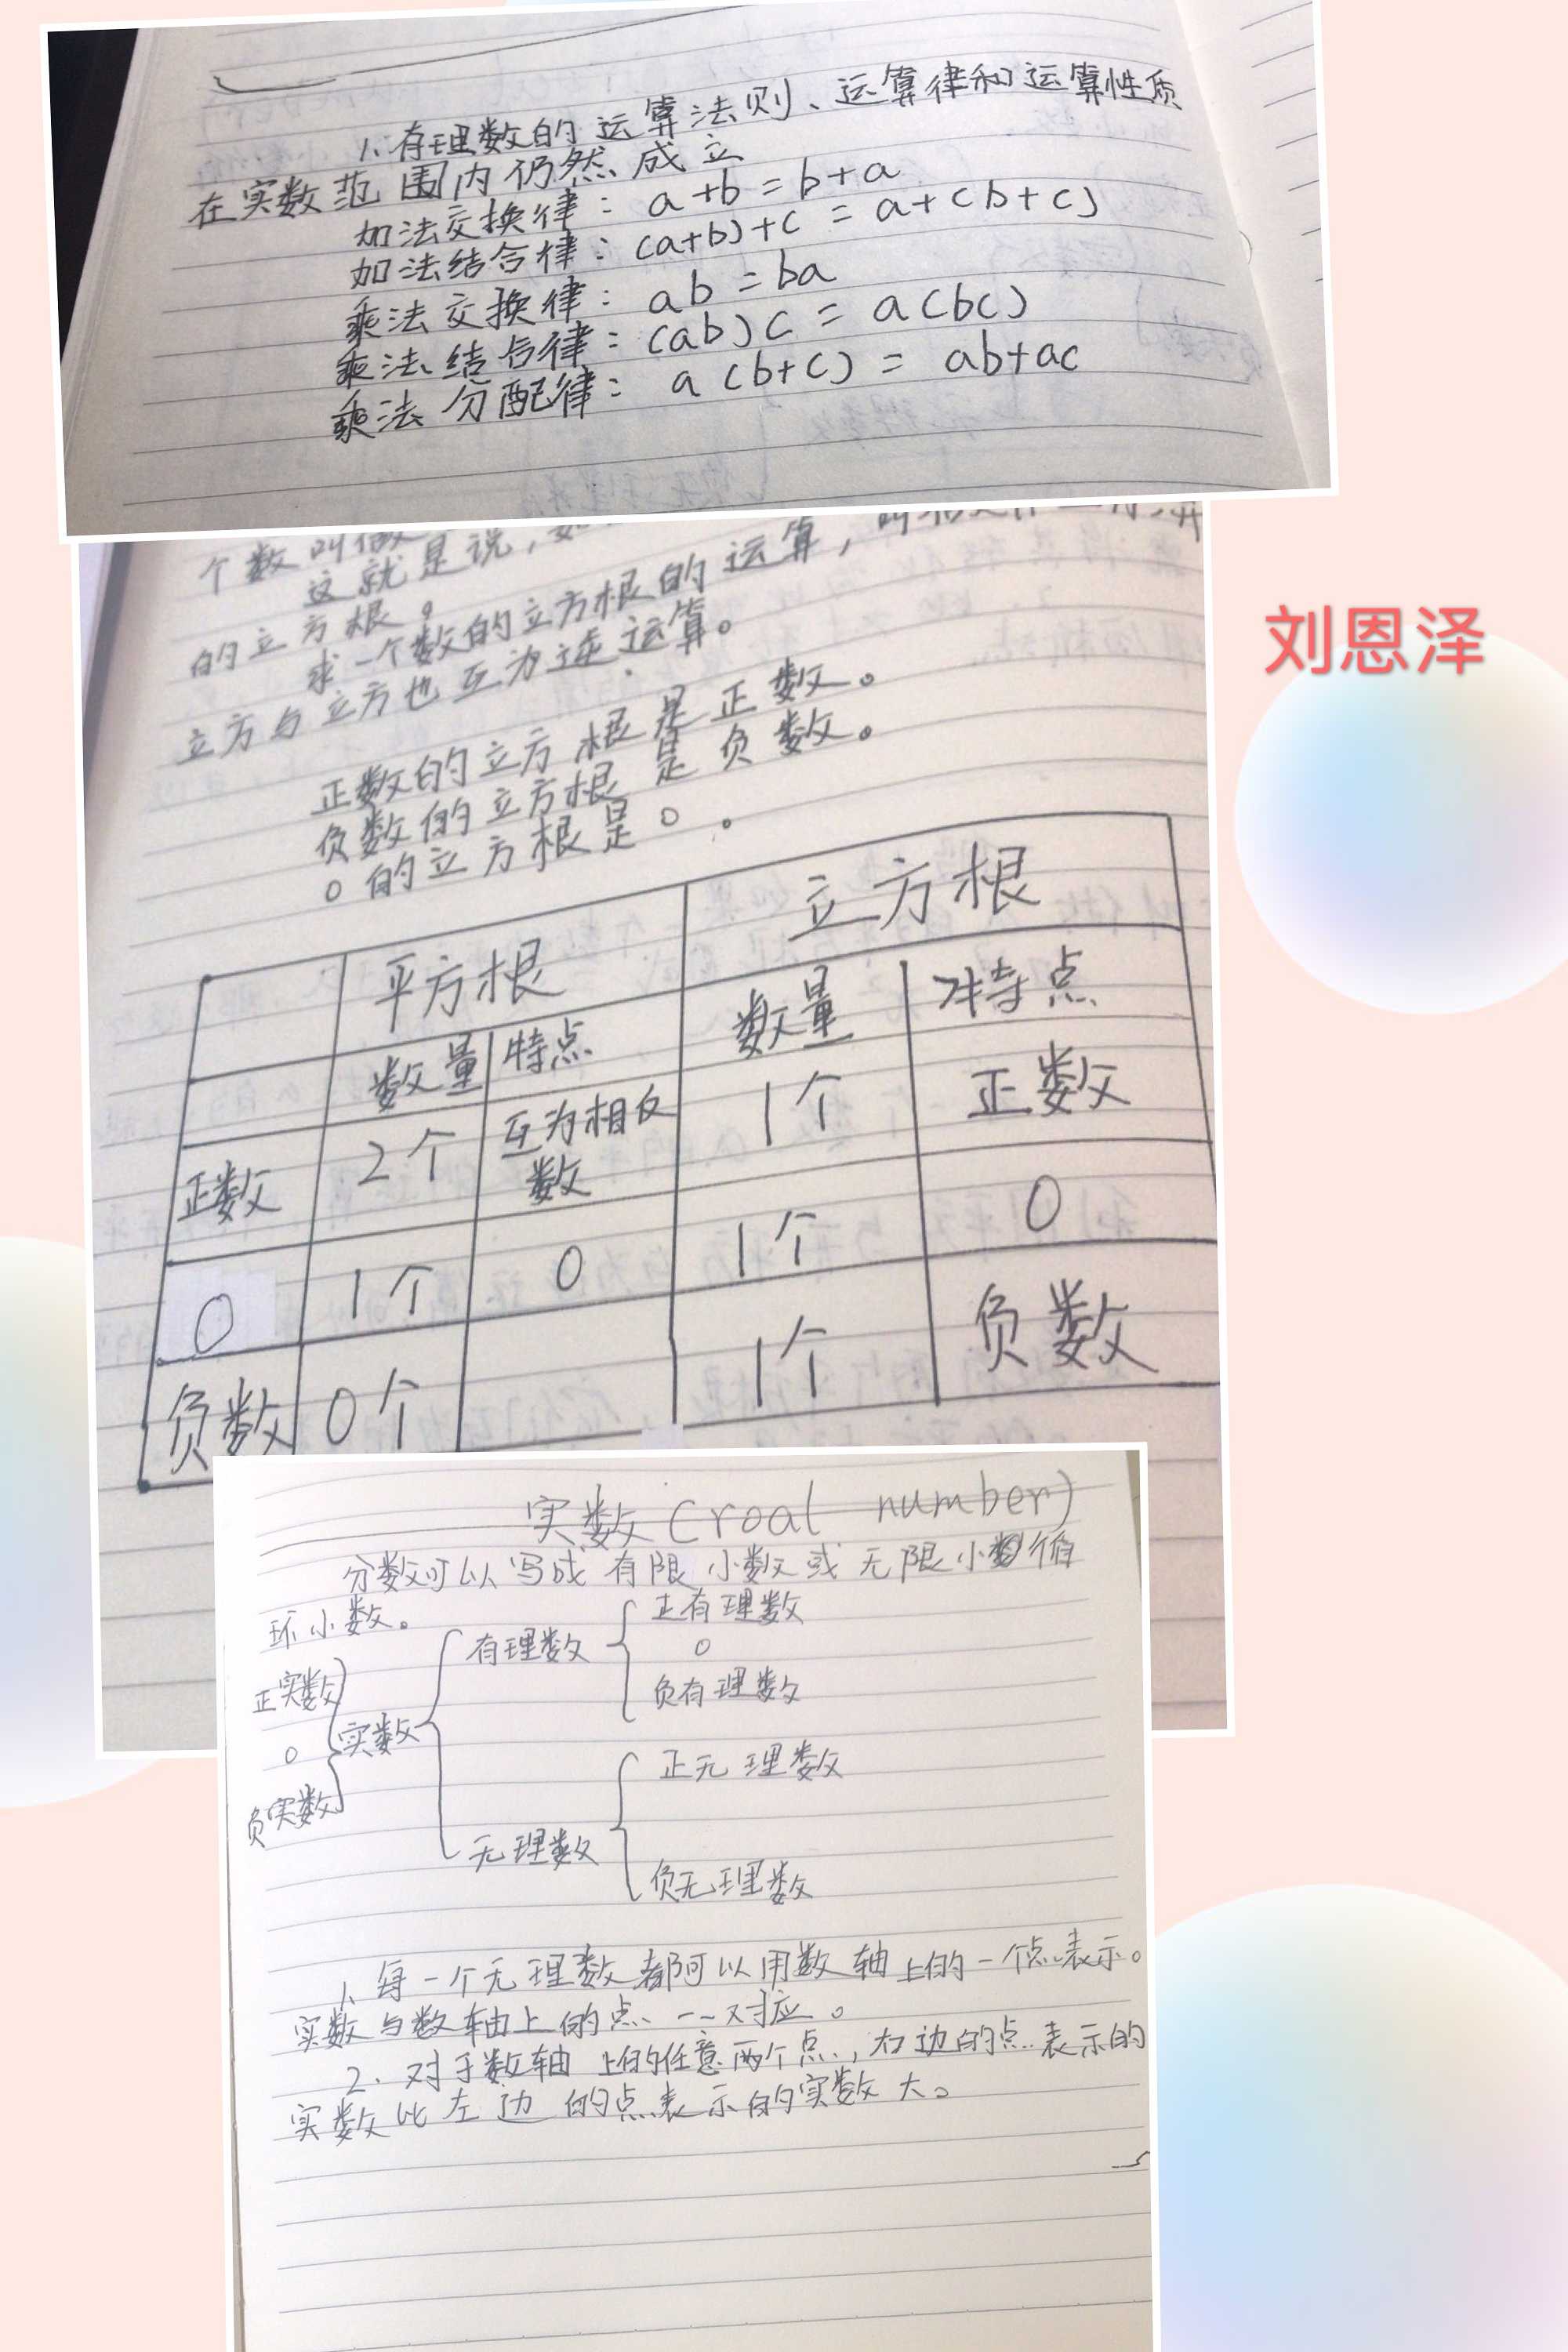 1、有理数的运算法则、运算律和运算性质
在实数范围内仍然成立
加法交换律：a+b=b+a
加法结合律：(a+b)+c=a+(b+c)
乘法交换律：ab=ba
乘法结合律：(ab)c=a(bc)
乘法分配律：a(b+c)=ab+ac
个数叫做
这就是说，如
的立方根。
求一个数的立方根的运算，叫
立方与立方也互为逆运算。
正数的立方根是正数。
负数的立方根是负数。
0的立方根是0。
平方根 立方根
数量 特点 数量 特点
正数 2个 互为相反数 1个 正数
0 1个 0 1个 0
负数 0个 1个 负数
刘恩泽
实数(roal number)
分数可以写成有限小数或无限小数循
环小数。
正有理数
有理数 0
负有理数
正实数
0 实数
负实数
正无理数
无理数
负无理数
1、每一个无理数都可以用数轴上的一个点表示。
实数与数轴上的点一一对应。
2、对于数轴上的任意两个点，右边的点表示的
实数比左边的点表示的实数大。